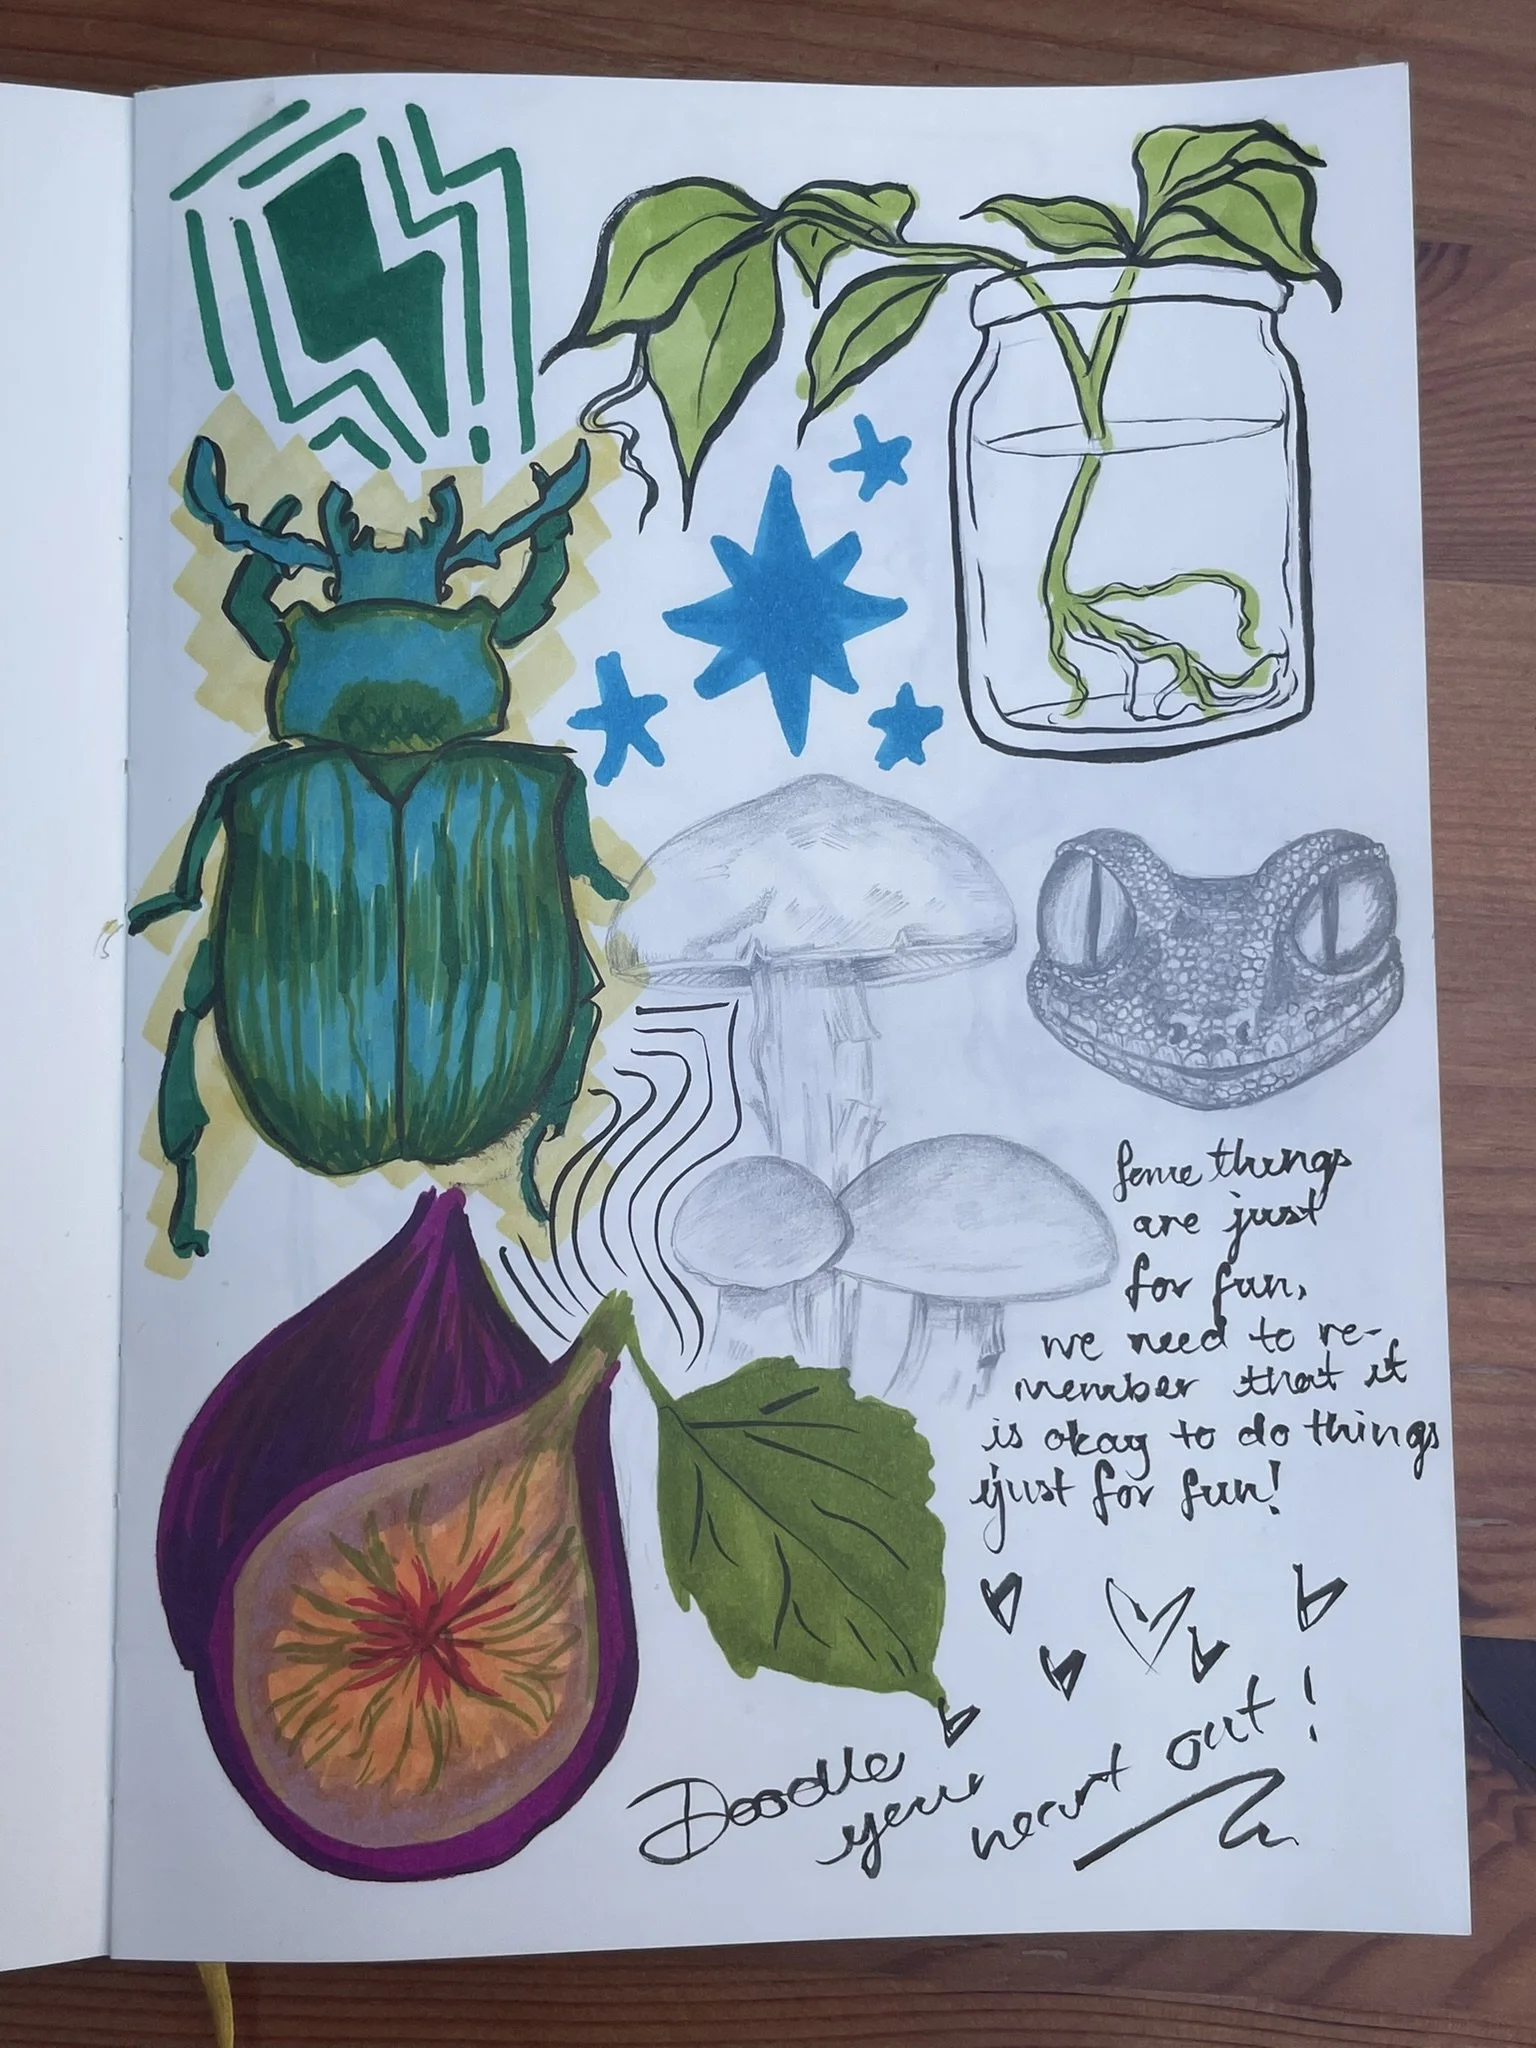 Some things
are just
for fun,
we need to re-
member that it
is okay to do things
just for fun!
Doodle
your
heart out!